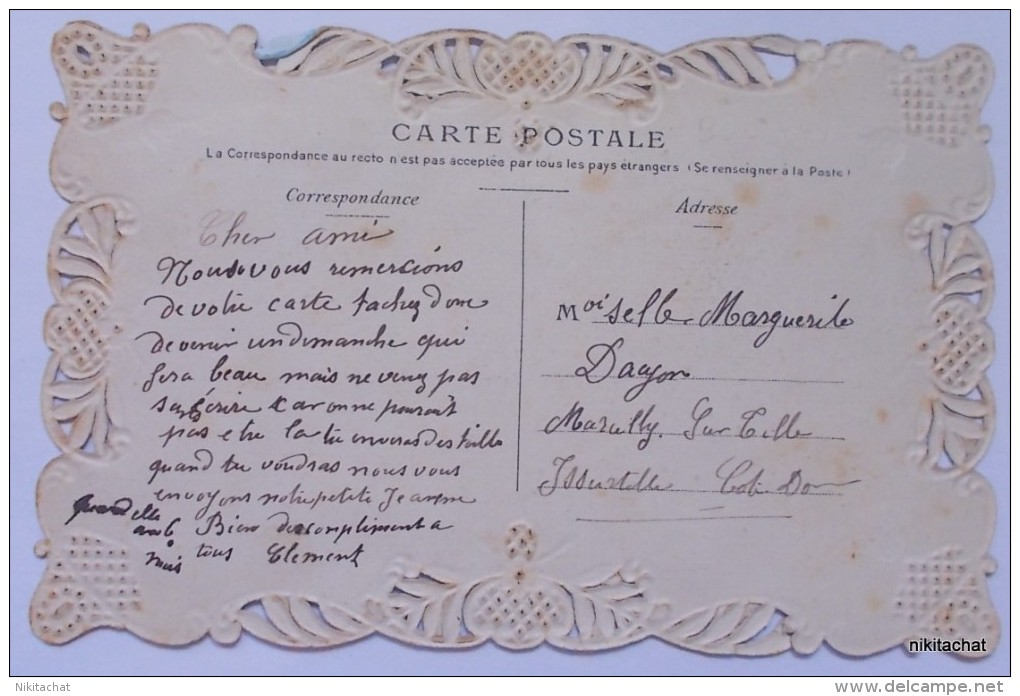 CARTE POSTALE
La Correspondance au recto n'est pas acceptée par tous les pays étrangers (Se renseigner à la Poste)
Correspondance
Cher ami
Nous vous remercions
de votre carte tachez donc
de venir un dimanche qui
fera beau mais ne venez pas
san écrire car on ne pourait
pas etre la tu enveras des
quand tu voudras nous vous
envoyons notre petite Jeanne
quand elle
Bien des compliment a
mois tous Clement
Adresse
Moiselle Marguerite
Dacyon
Marcilly Sur Tille
Issurtille Cote Dor
nikitachat
Nikitachat
© www.delcampe.net